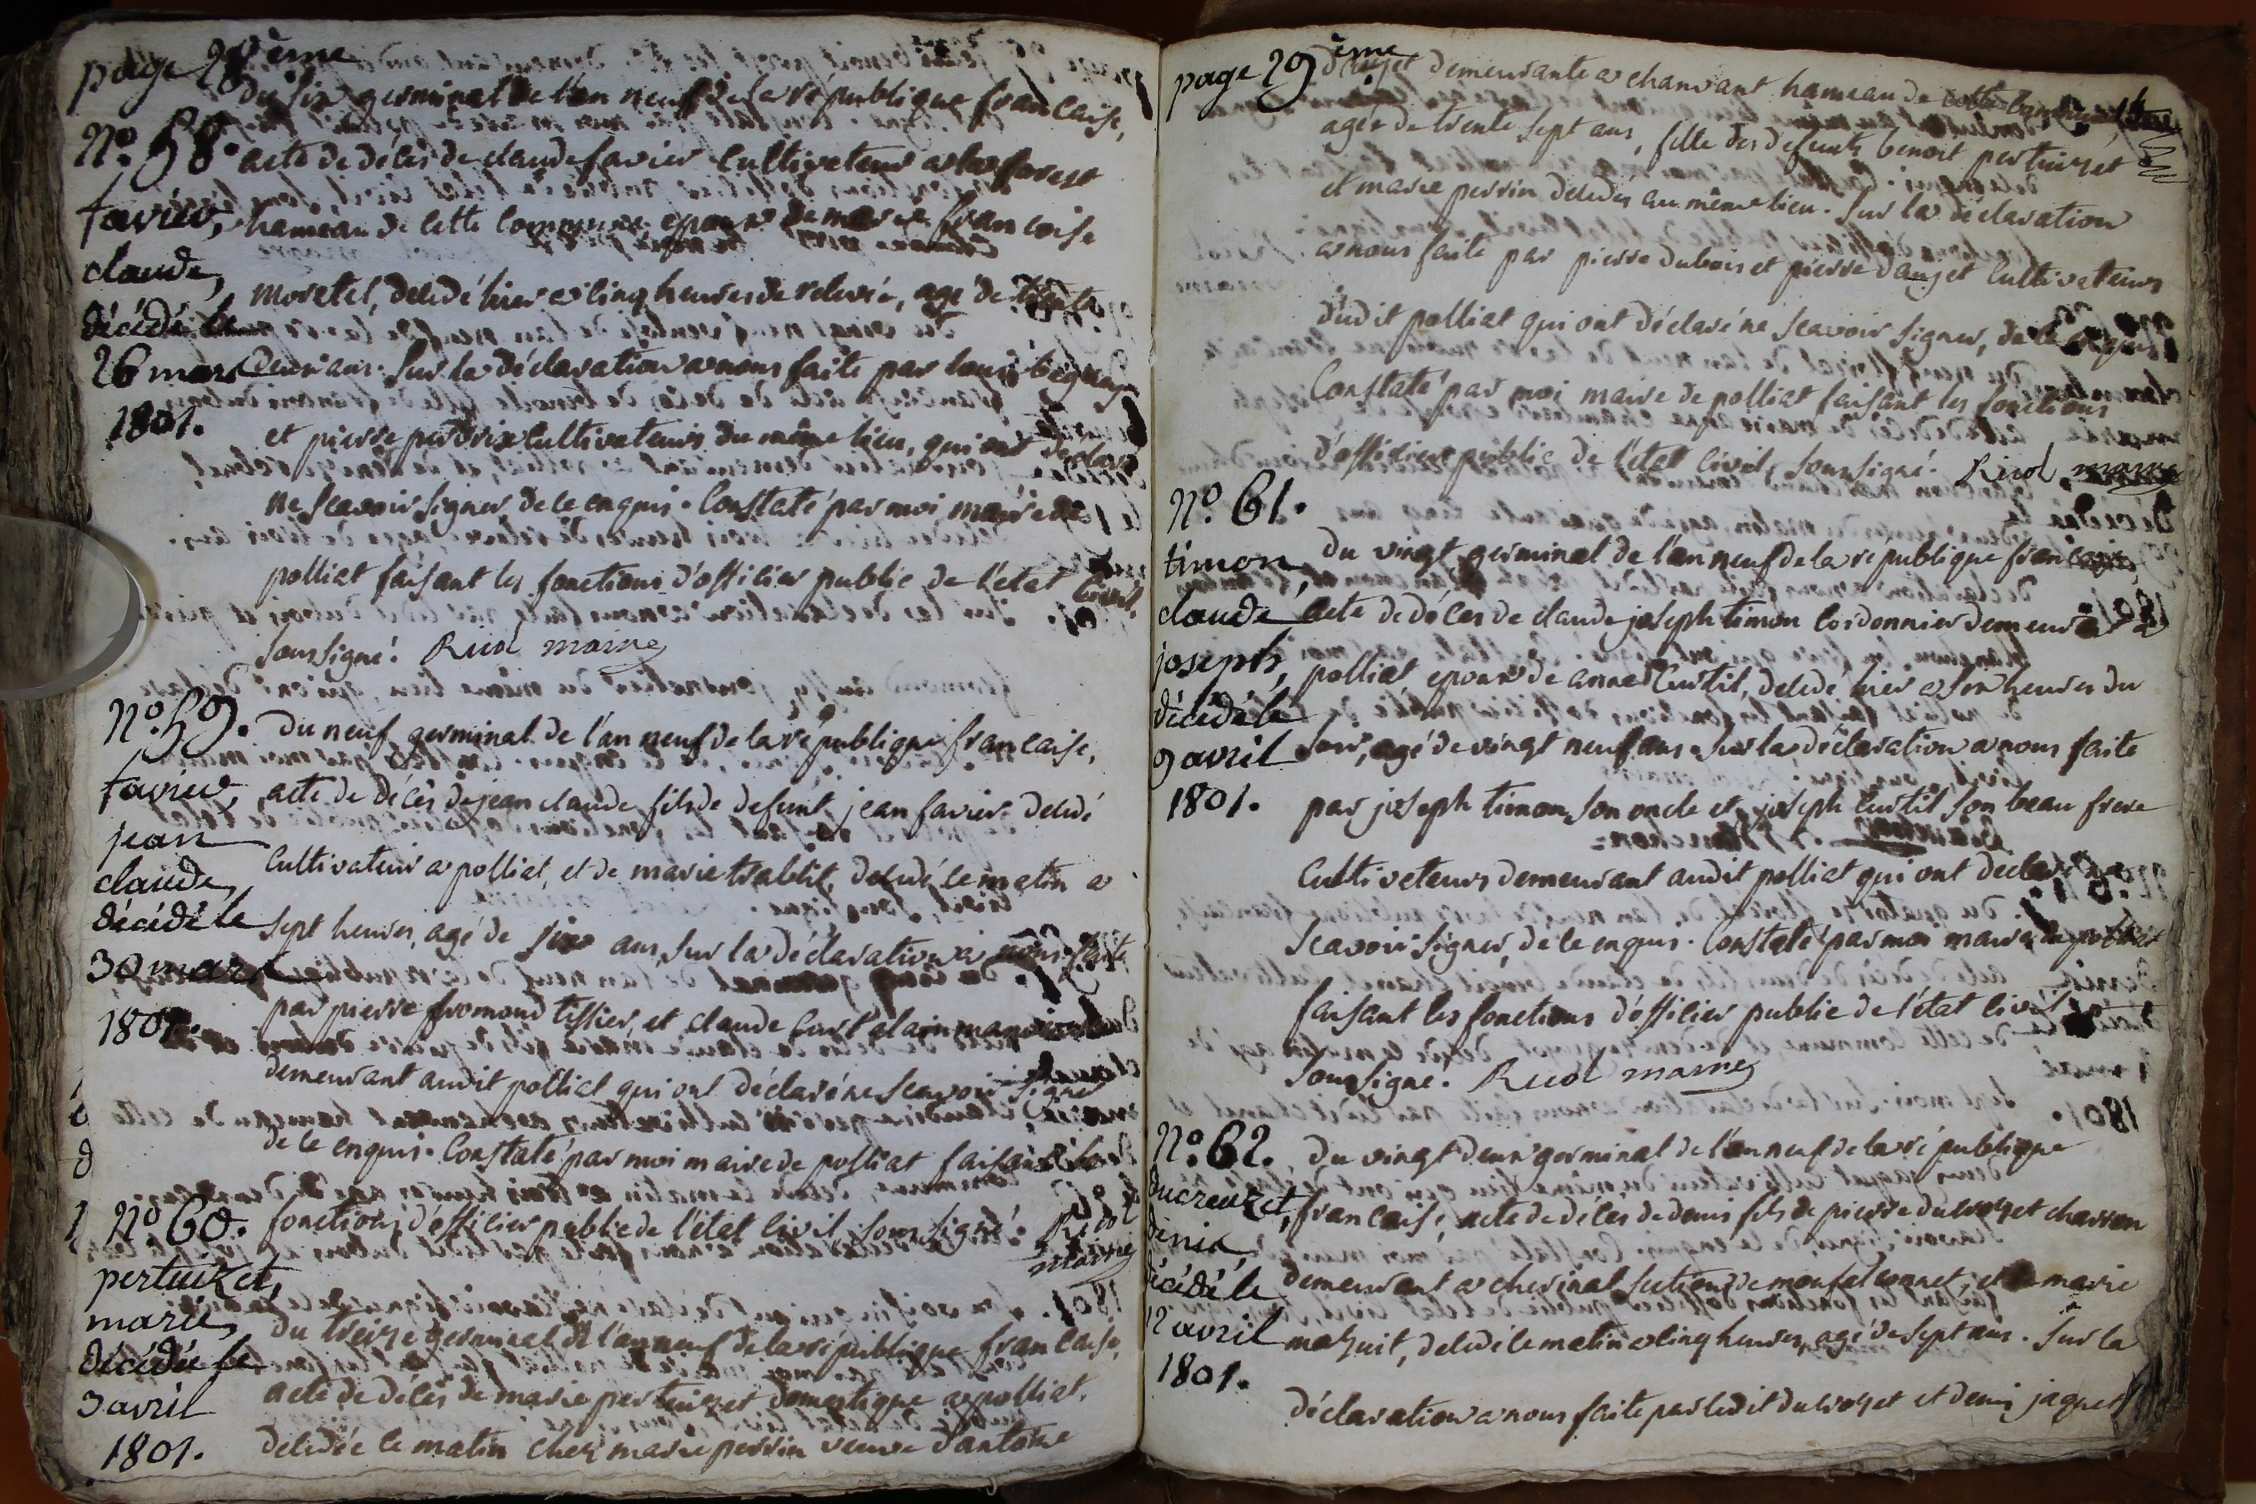 page 28ème
Du six germinal de l'an neuf de la république française,
N.º 58. acte de décès de claude favier cultivateur a la forest
favier, hameau de cette commune epoux de marie françoise
claude, moretel, décédé hier a cinq heures de relevée, agé de trente
décédé le
26 mars deux ans. Sur la déclaration a nous faite par louis
1801. et pierre perdrix cultivateurs du même lieu, qui ont déclaré
ne scavoir signer de ce enquis. Constaté par moi maire de
polliat faisant les fonctions d'officier public de l'état civil,
soussigné. Ricol maire
N.º 59. Du neuf germinal de l'an neuf de la république française,
favier, acte de décès de jean claude fils de defunt jean favier décédé
jean
claude, cultivateur a polliat, et de marie trablit, décédé ce matin a
décédé le sept heures, agé de six ans, sur la déclaration a nous faite
30 mars
1801. par pierre fromond tissier, et claude
demeurant audit polliat qui ont déclaré ne scavoir signer
de ce enquis. Constaté par moi maire de polliat faisant les
N.º 60. fonctions d'officier public de l'état civil, soussigné. Ricol
maire
pertuizet,
marie, Du treize germinal de l'an neuf de la république française,
décédée le
3 avril acte de décès de marie pertuizet domestique a polliat,
1801. décédée ce matin chez marie perrin veuve d'antoine
page 29ème
daujet demeurante a chanvant hameau de cette
agée de trente sept ans, fille des defunts benoit pertuizet
et marie perrin décédés au même lieu. Sur la déclaration
a nous faite par pierre dubois et pierre daujet cultivateurs
dudit polliat qui ont déclaré ne scavoir signer, de ce enquis
Constaté par moi maire de polliat faisant les fonctions
d'officier public de l'état civil, soussigné. Ricol, maire
N.º 61.
timon, du vingt germinal de l'an neuf de la république française,
claude acte de décès de claude joseph timon cordonnier demeurant a
joseph, polliat epoux de anne curtil, décédé hier a six heures du
décédé le
9 avril soir, agé de vingt neuf ans. Sur la déclaration a nous faite
1801. par joseph timon son oncle et joseph curtil son beau frere
Cultivateurs demeurant audit polliat qui ont déclaré ne
scavoir signer, de ce enquis. Constaté par moi maire de polliat
faisant les fonctions d'officier public de l'état civil
soussigné. Ricol maire
N.º 62. Du vingt deux germinal de l'an neuf de la république
ducreuzet, française, acte de décès de denis fils de pierre ducrozet charron
denis,
décédé le demeurant a cherinal section de monfalconnet, et de marie
12 avril mazuit, décédé ce matin a cinq heures, agé de sept ans. Sur la
1801.
déclaration a nous faite par ledit ducrozet et denis jaquet